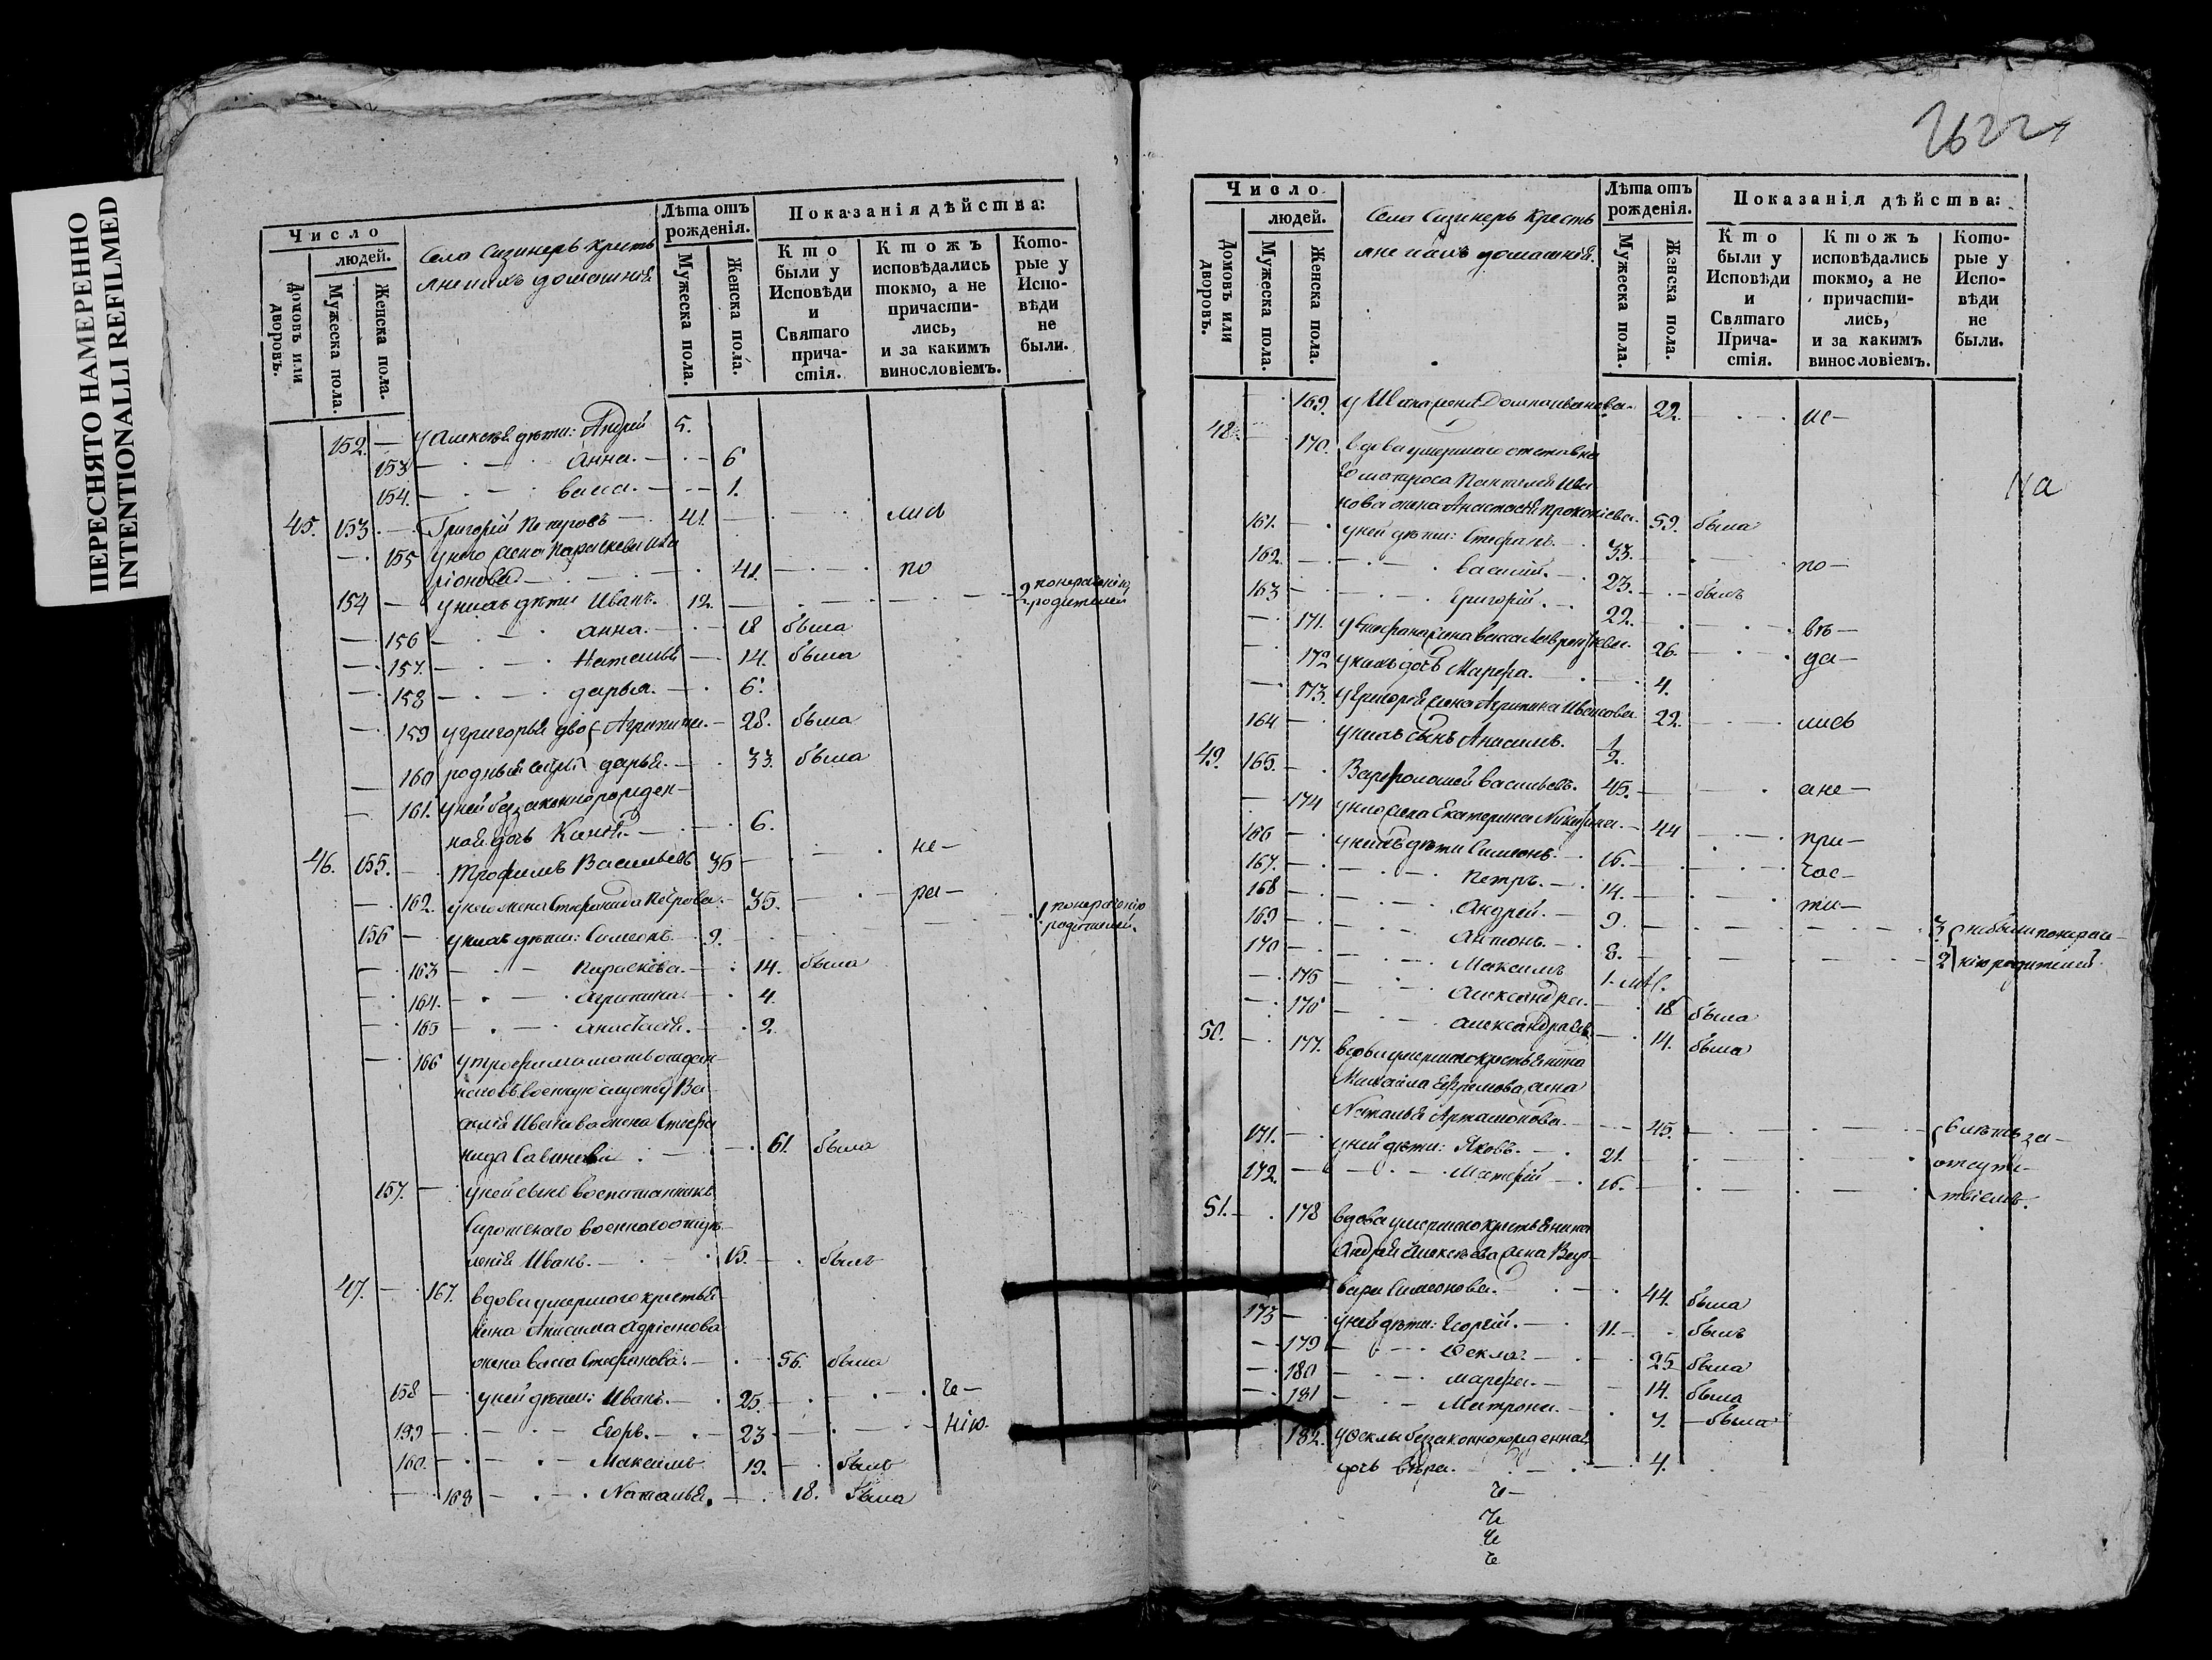 ПЕРЕСНЯТО НАМЕРЕННО
INTENTIONALLI REFILMED
Число
людей.
Домовъ или дворовъ.
Мужеска пола.
Женска пола.
Села Сизинеръ крестья
яне и ихъ домашніе
Лѣта отъ рожденія.
Мужеска пола.
Женска пола.
Показанія дѣйства:
Кто были у Исповѣди и Святаго причастія.
Ктожъ исповѣдались токмо, а не причастились, и за какимъ винословіемъ.
Которые у Исповѣди не были.
152. — у Алексѣя дѣти: Андрей 5.
153 — Анна. — 6
154. — васса. — 1.
45. 153. — Григорій Петровъ — 41. — лись
155 у него жена Параскева
41. — по
154 — у нихъ дѣти Иванъ. 12. — 2 по нераденію родителей
156 — анна. — 18 была
157. — Наталья — 14. была
158 — дарья. — 6.
159 у григорья дво Агрипина. — 28. была
160 родныя сестры дарья. — 33. была
161. у ней беззаконнорожден-
ная дочь — 6.
46. 155. — Трофимъ Васильевъ 35 — не-
162. у него жена Степанида Петрова. — 35. — ра-
156 — у нихъ дѣти: Симеонъ. 9. — 1 по нераденію родителей.
163 — Параскева. — 14. была
164. — Агрипина. — 4.
165 — анастасія. — 2.
166 у трофима мать отдан
наго въ военную службу Ва-
силія Иванова жена Степа
нида Савинова — 61. была
157. — у ней сынъ воспитанникъ
Сиротскаго военнаго отдѣ-
ленія Иванъ. — 15. — былъ
47. — 167. вдова умершаго крестья-
нина Анисима Адріанова
жена васса Стефанова. — 56. была
158 — у ней дѣти: Иванъ. — 25. — че-
159 — Егоръ. — 23 — нію.
160. — Максимъ 19. — былъ
168 — Наталья. — 18. была
2622
Число
людей.
Домовъ или дворовъ.
Мужеска пола.
Женска пола.
Села Сизинеръ Кресть
яне и ихъ домашніе.
Лѣта отъ рожденія.
Мужеска пола.
Женска пола.
Показанія дѣйства:
Кто были у Исповѣди и Святаго Причастія.
Ктожъ исповѣдались токмо, а не причастились, и за какимъ винословіемъ.
Которые у Исповѣди не были.
169. у Ивана жена Домна Иванова. 22. — ис-
48. — 170. вдова умершаго отставна
го матроса Пантелея Ива
нова жена Анастасія Прокопіева. 59. была
161. — у ней дѣти: Стефанъ. — 33. — по-
162. — василій. — 23. — былъ
163 — Григорій. — 22. — вѣ-
171. у Стефана жена васса Лаврентьева. 26. — да-
172 у нихъ дочь Марфа. — 4.
173. у Григорія жена Агрипина Иванова 22. — лись
164 — у нихъ сынъ Анисимъ. ½.
49. 165. — Варфоломей васильевъ. 45. — а не-
174 у него жена Екатерина Никитина. — 44 — при-
166 — у нихъ дѣти Симеонъ. — 16. — час-
167. — Петръ. — 14. — ти-
168 — Андрей. — 9. — 3 не были по нераде-
169 — Антонъ. — 8. — 2 нію родителей.
170 — Максимъ 1.
175 — Александра. — 18 была
176 — александра — 14. была
50. — 177. вдова умершаго крестьянина
Михаила Ефремова жена
Наталья Артамонова. — 45. — въ лѣтъ за-
171. — у ней дѣти: Яковъ. — 21. — отсутс-
172. — — 16. — твіемъ.
51. — 178 вдова умершаго крестьянина
Андрея Алексѣева жена Вар-
вара Симеонова. — 44. была
173 — у ней дѣти: Георгій. — 11. — былъ
179 — Фекла. — 25 была
180 — марфа. — 14. была
181 — Матрона. — 7. — была
182. у Феклы беззаконнорожденная
дочь вѣра. — 4.
че-
че
че
че
на